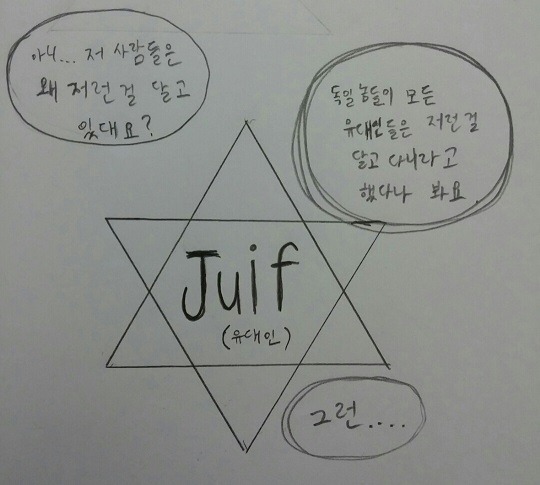 아니... 저 사람들은
왜 저런걸 달고
있대요?
독일 놈들이 모든
유대인들은 저런걸
달고 다니라고
했다나 봐요.
Juif
(유대인)
그런....